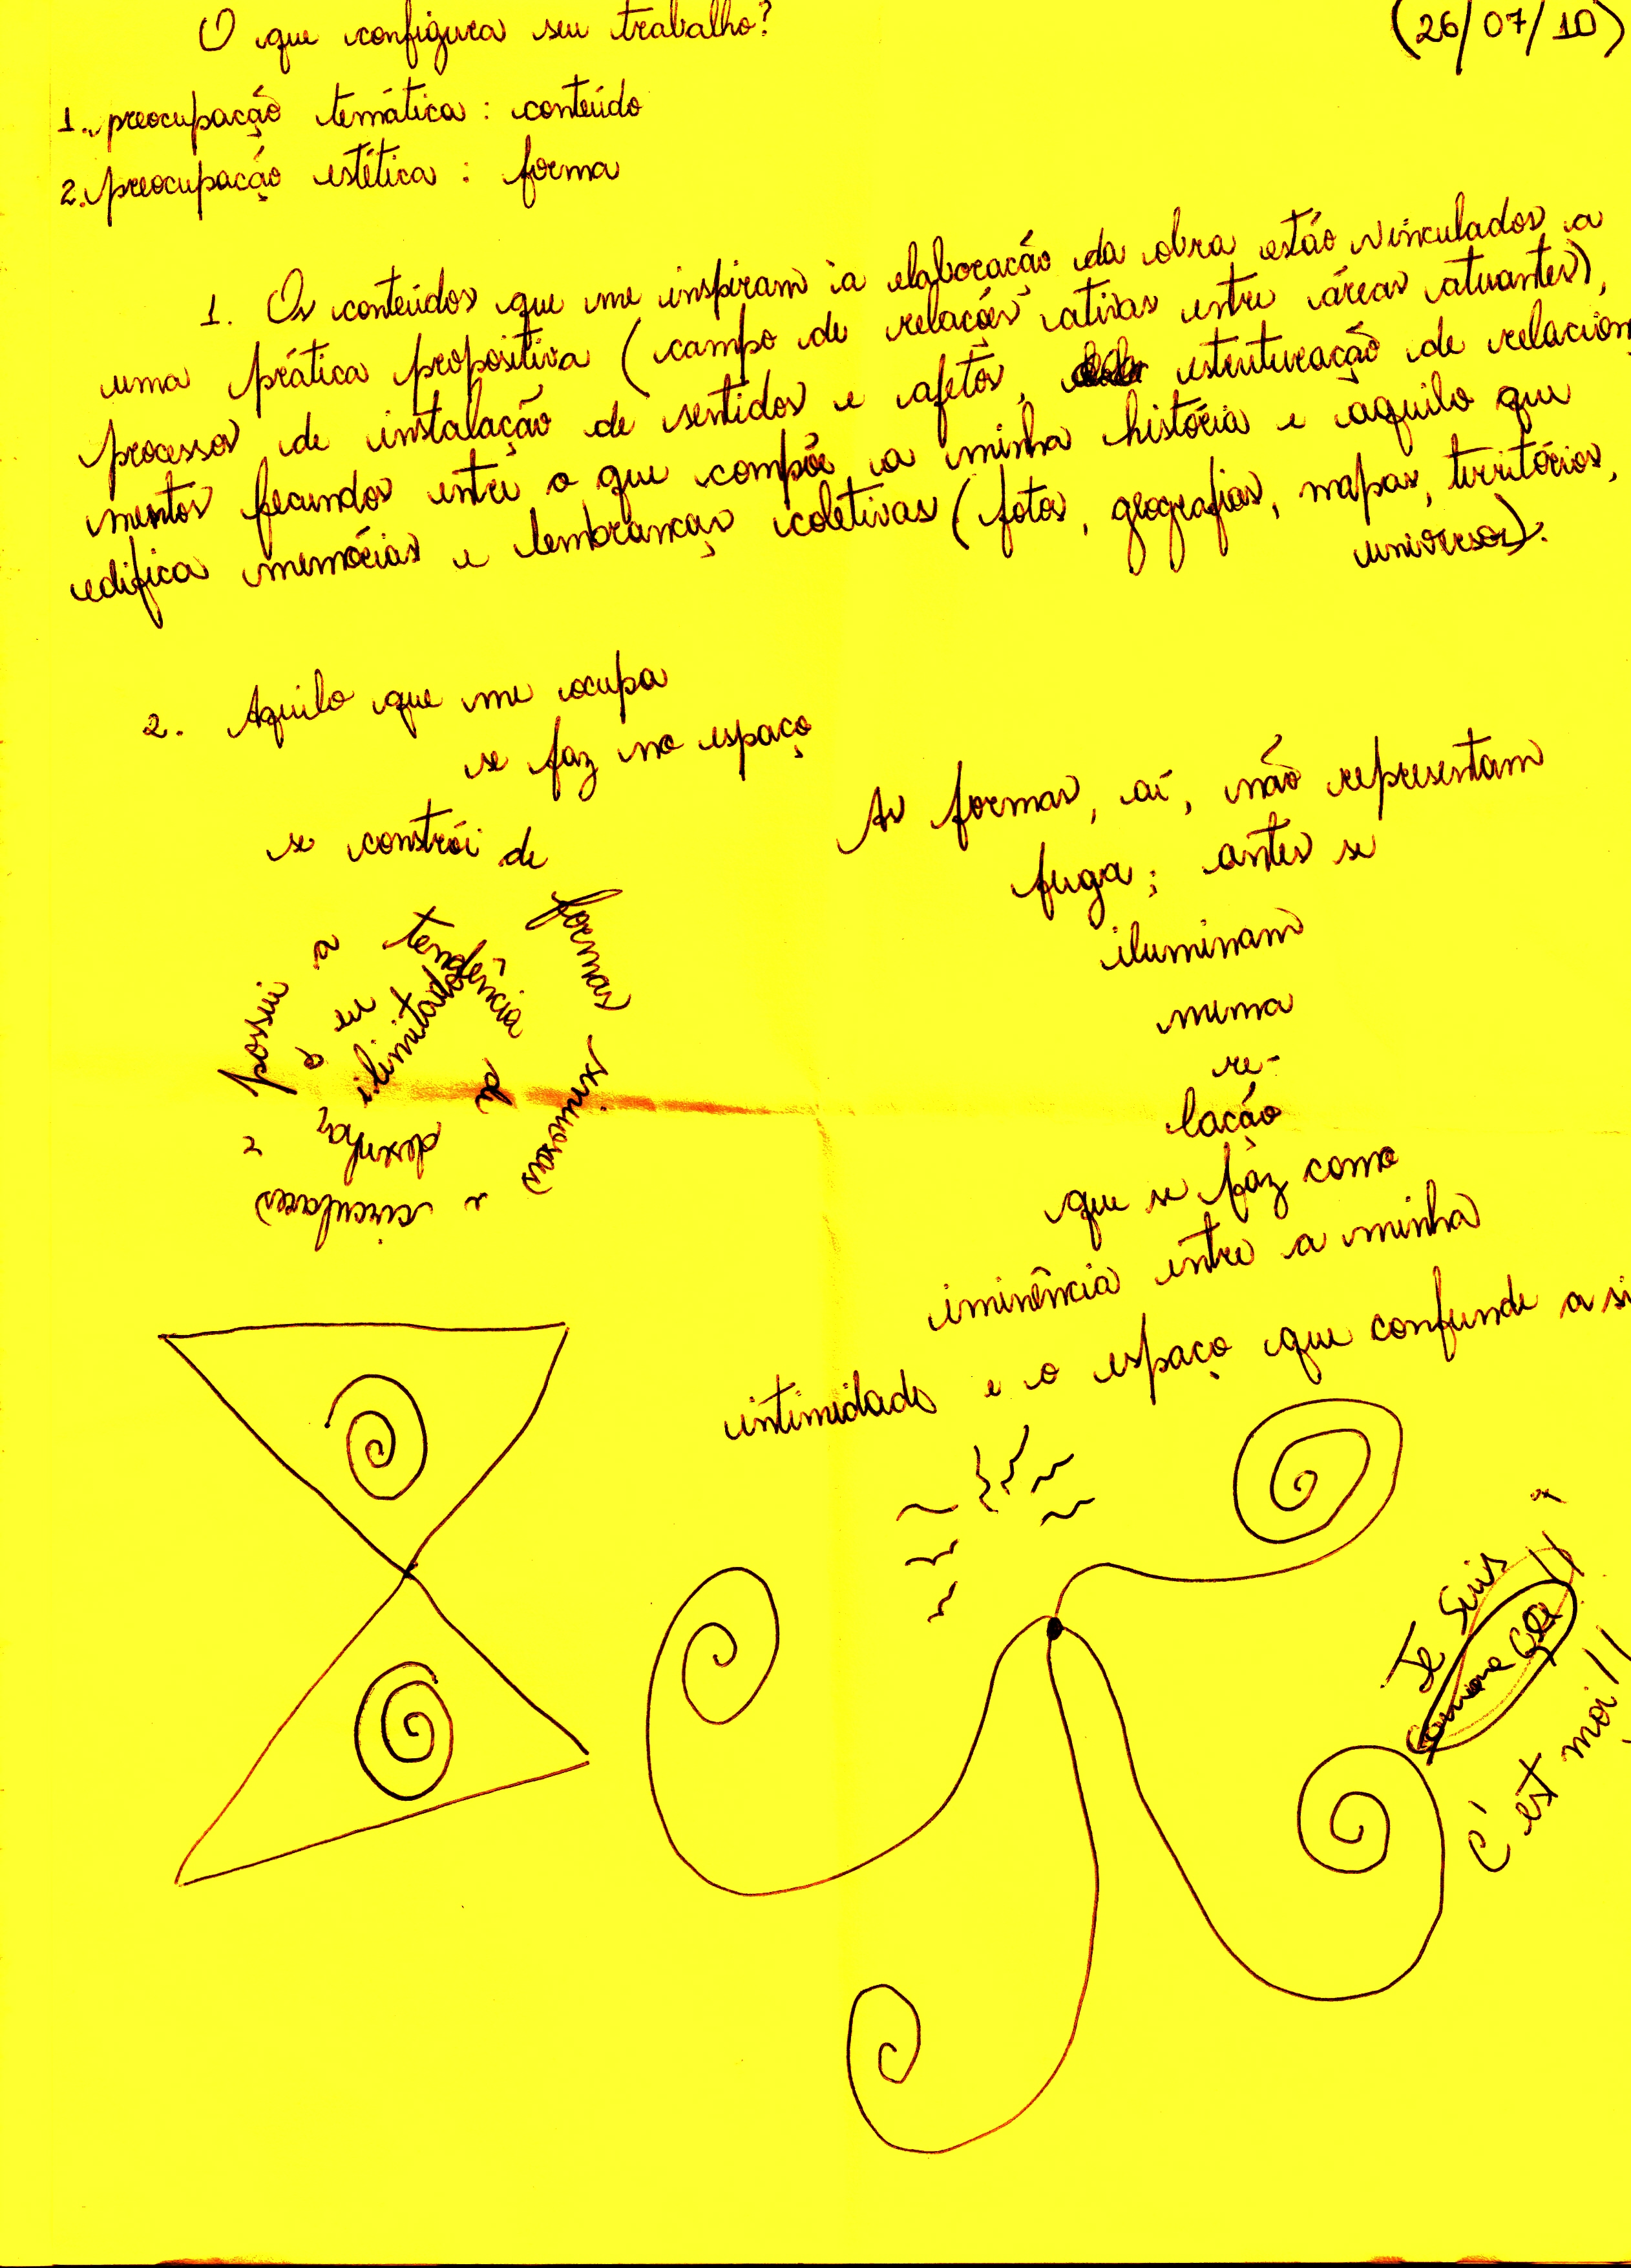 O que configura seu trabalho?
(26/07/10)
1. preocupação temática: conteúdo
2. preocupação estética: forma
1. Os conteúdos que me inspiram à elaboração da obra estão vinculados a
uma prática propositiva (campo de relações ativas entre áreas atuantes),
processos de instalação de sentidos e afetos, estruturação de relacion
mentos fecundos entre o que compõe a minha história e aquilo que
edifica memórias e lembranças coletivas (fotos, geografias, mapas, territórios,
universos).
2. Aquilo que me ocupa
se faz no espaço
se constrói de
formas
sinuosas
e circulares
e
possui a tendência
de
desenhar
o eu
ilimitado
As formas, aí, não representam
fuga; antes se
iluminam
numa
re-
lação
que se faz como
iminência entre a minha
intimidade e o espaço que confunde a si
Je Suis
C'est moi!!